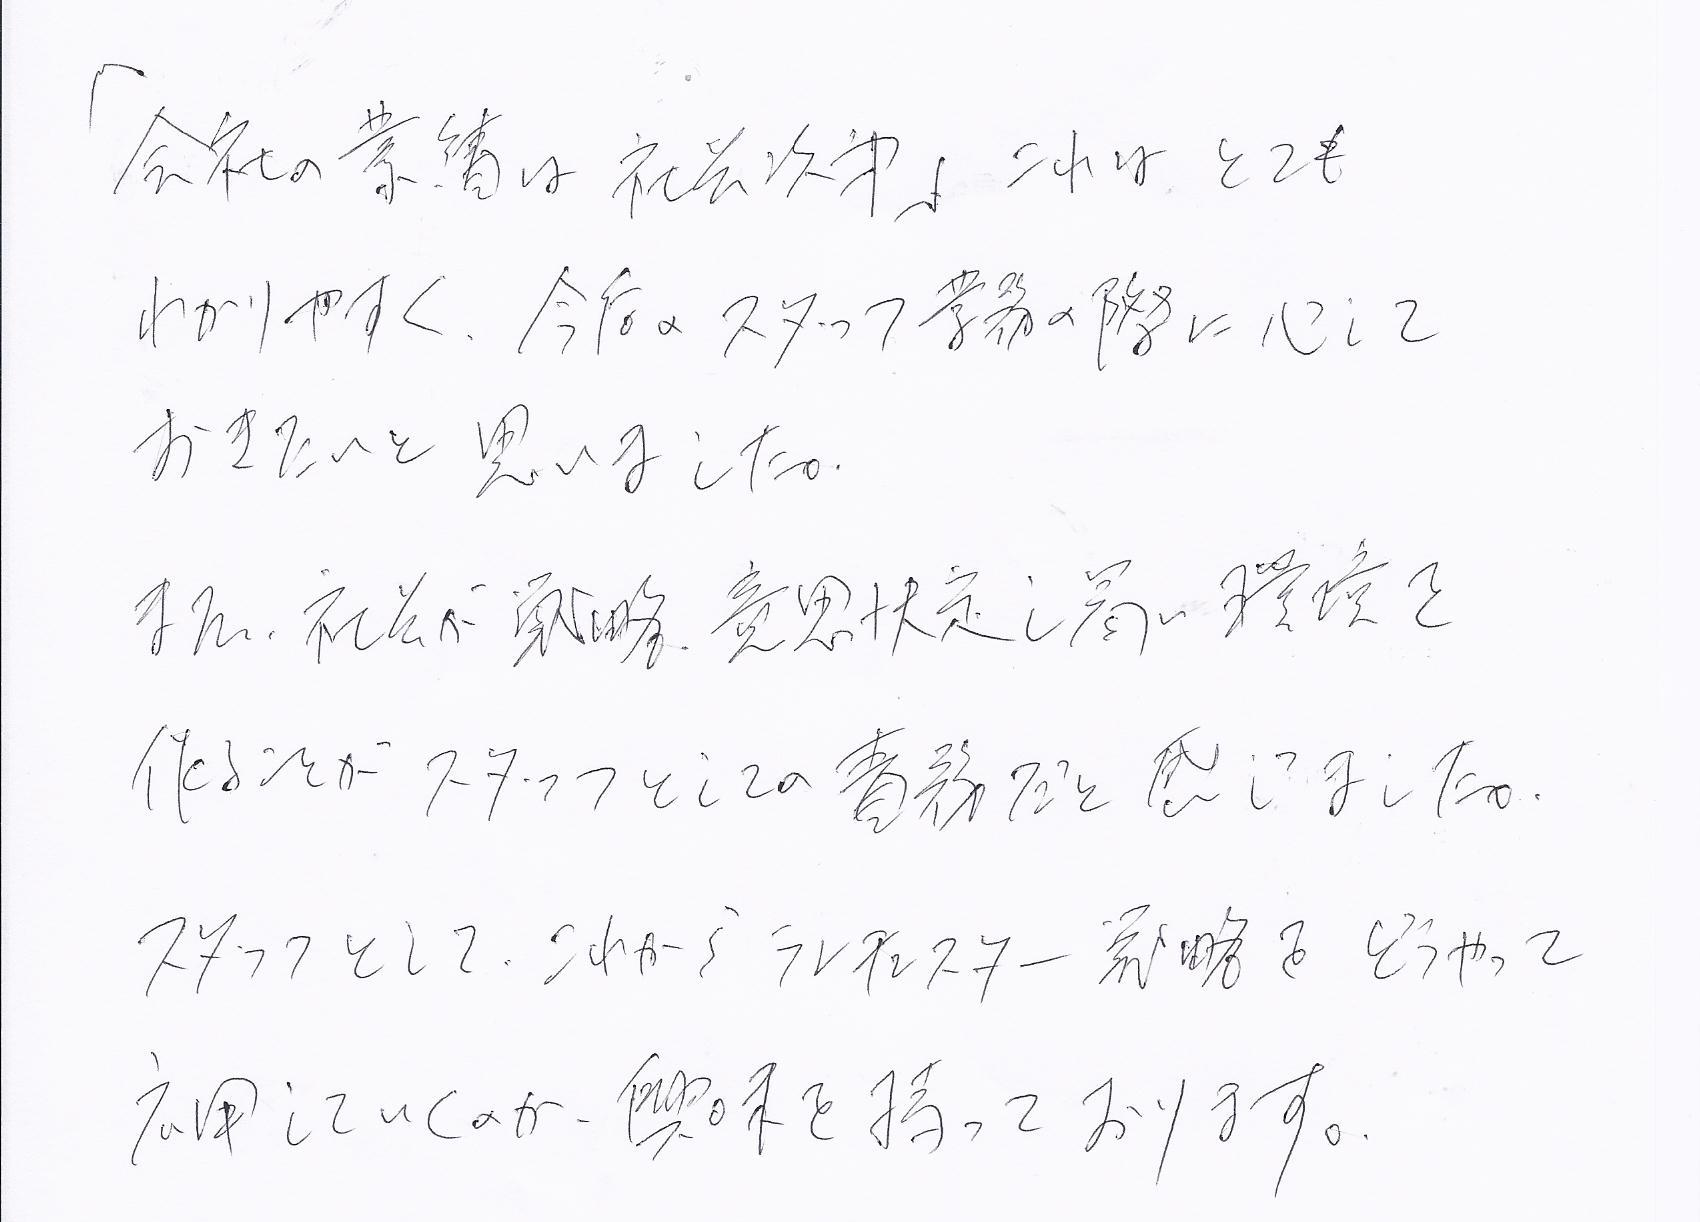 「会社の業績は社長次第」これはとても
わかりやすく、今後のスタッフ業務の際に心して
おきたいと思いました。
また、社長が戦略、意思決定し易い環境を
作ることがスタッフとしての責務だと感じました。
スタッフとして、これからランチェスター戦略をどうやって
応用していくのか、興味を持っております。